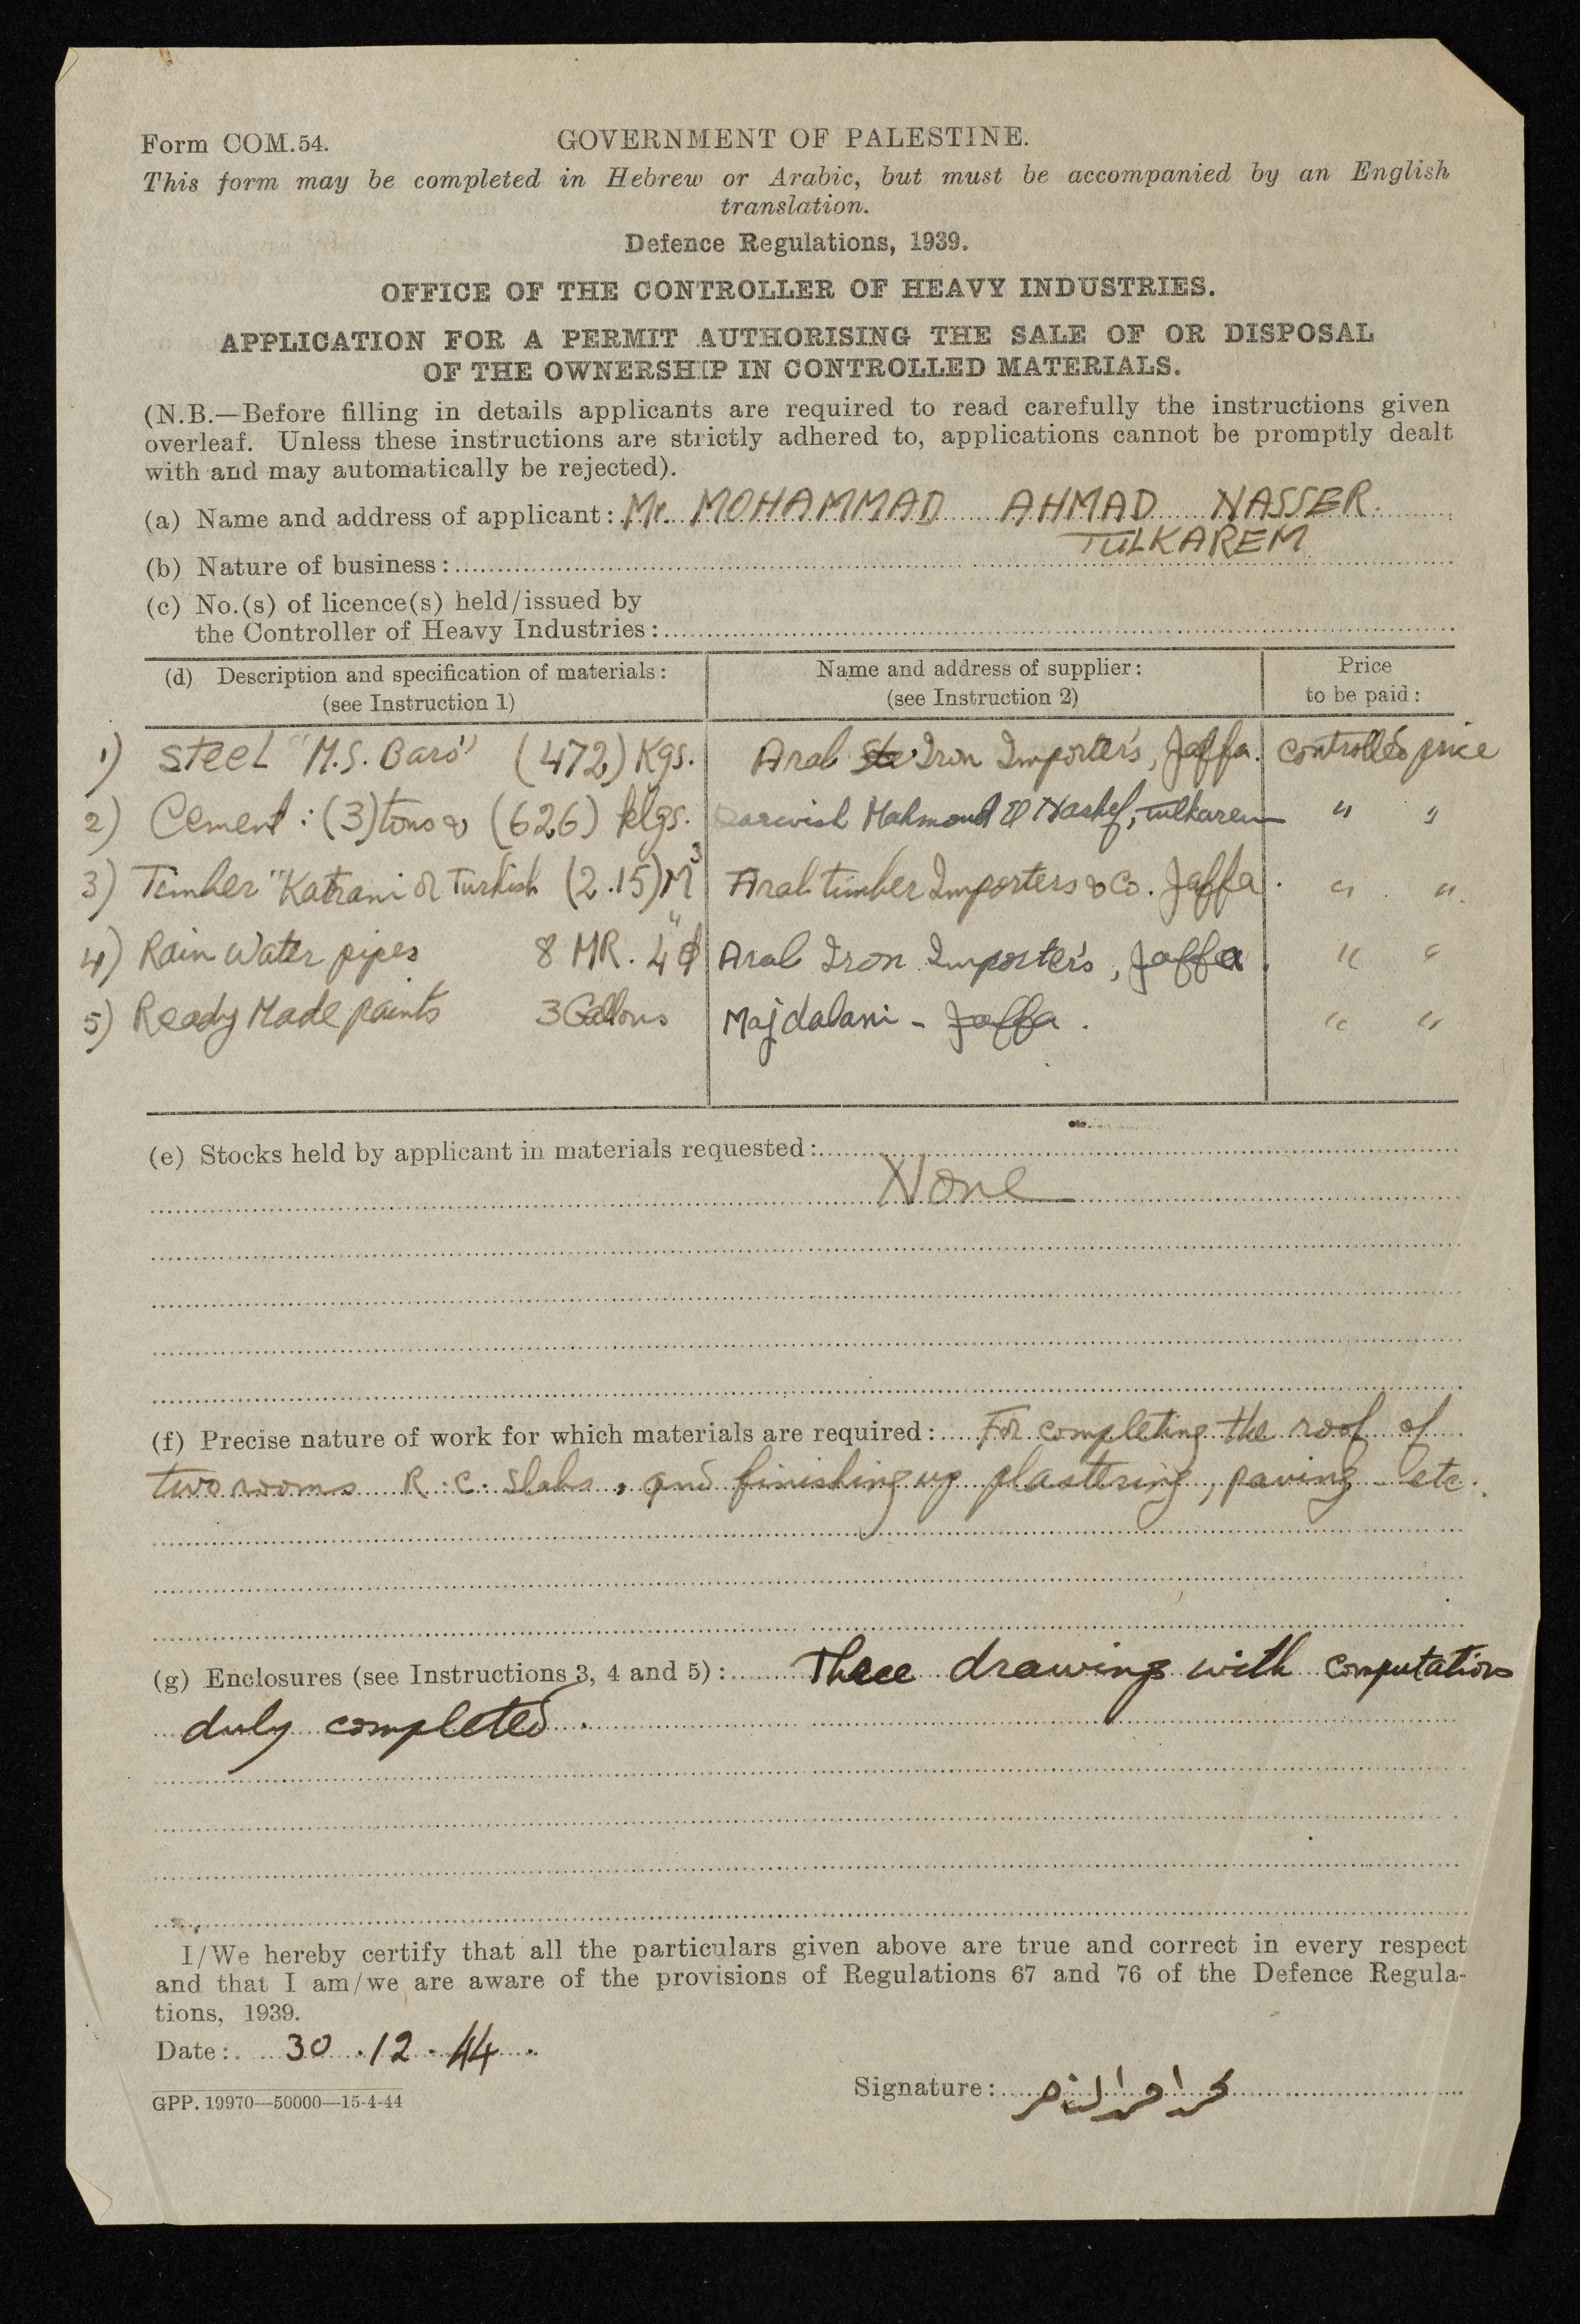 Form COM.54.
GOVERNMENT OF PALESTINE.
This form may be completed in Hebrew or Arabic, but must be accompanied by an English
translation.
Defence Regulations, 1939.
OFFICE OF THE CONTROLLER OF HEAVY INDUSTRIES.
APPLICATION FOR A PERMIT AUTHORISING THE SALE OF OR DISPOSAL
OF THE OWNERSHIP IN CONTROLLED MATERIALS.
(N.B.—Before filling in details applicants are required to read carefully the instructions given
overleaf. Unless these instructions are strictly adhered to, applications cannot be promptly dealt
with and may automatically be rejected).
(a) Name and address of applicant: Mr. MOHAMMAD AHMAD NASSER.
TULKAREM
(b) Nature of business:
(c) No.(s) of licence(s) held/issued by
the Controller of Heavy Industries:
(d) Description and specification of materials: Name and address of supplier: Price
(see Instruction 1) (see Instruction 2) to be paid:
1) Steel "M.S. Bars" (472) Kgs. Arab Iron Importers, Jaffa. controlled price
2) Cement: (3) tons & (626) klgs. Darwish Mahmoud El Nashef, Tulkarem " "
3) Timber "Katrani or Turkish (2.15) M3 Arab timber Importers & Co. Jaffa. " "
4) Rain Water pipes 8 MR. 4" ϕ Arab Iron Importers, Jaffa. " "
5) Ready Made paints 3 Gallons Majdalani - Jaffa. " "
(e) Stocks held by applicant in materials requested:
None
(f) Precise nature of work for which materials are required: For completing the roof of
two rooms R.C. Slabs, and finishing up plastering, paving etc.
(g) Enclosures (see Instructions 3, 4 and 5): Three drawings with computations
duly completed.
I/We hereby certify that all the particulars given above are true and correct in every respect
and that I am/we are aware of the provisions of Regulations 67 and 76 of the Defence Regula-
tions, 1939.
Date: 30.12.44.
Signature: محمد احمد الناصر
GPP. 19970—50000—15-4-44